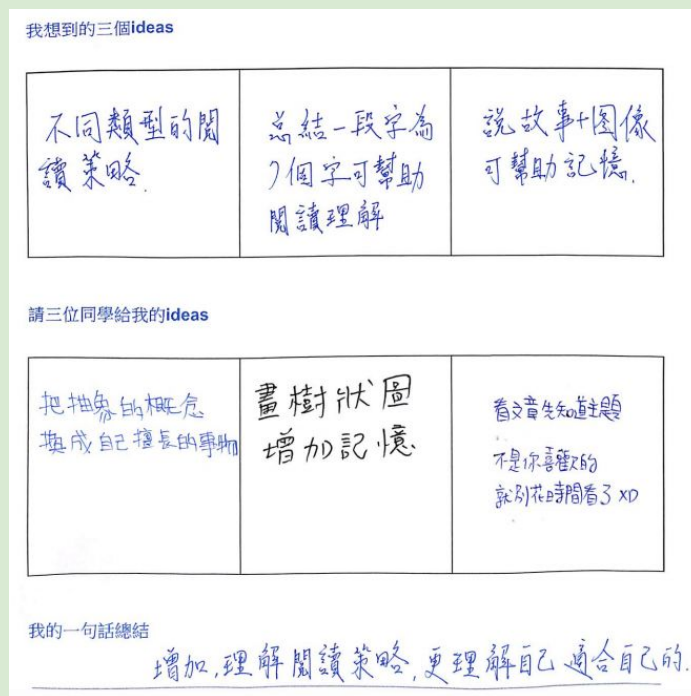 我想到的三個ideas
不同類型的閱
讀策略.
總結一段字為
7個字可幫助
閱讀理解
說故事+图像
可幫助記憶.
請三位同學給我的ideas
把抽象的概念
換成自己擅長的事物
畫樹狀圖
增加記憶
看文章先知道主題
不是你喜歡的
就別花時間看了 XD
我的一句話總結
增加,理解閱讀策略,更理解自己 適合自己的.